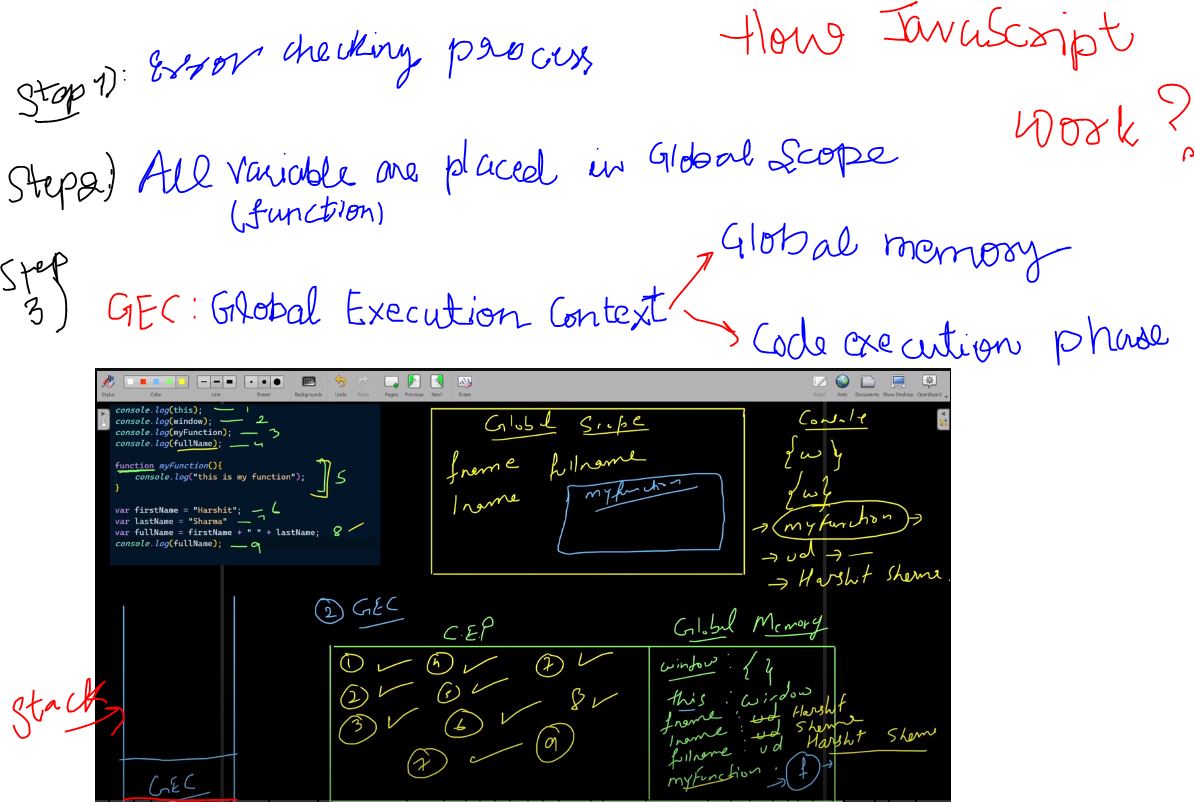 How JavaScript
Work ?
Step 1): Error checking process
Step 2:) All variable are placed in Global Scope
(function)
Step 3) GEC : Global Execution Context
Global memory
Code execution phase
Stylus
Color
Line
Eraser
Backgrounds
Undo
Redo
Pages
Previous
Next
Erase
Board
Web
Documents
Show Desktop
OpenBoard
console.log(this); — 1
console.log(window); — 2
console.log(myFunction); — 3
console.log(fullName); — 4
function myFunction(){
console.log("this is my function");
} 5
var firstName = "Harshit"; — 6
var lastName = "Sharma" — 7
var fullName = firstName + " " + lastName; 8
console.log(fullName); — 9
Global Scope
fname fullname
lname
myfunction
Console
{w}
{w}
→ myfunction →
→ ud → —
→ Harshit Sharma
② GEC
C.E.P
① ✓ ④ ✓ ⑦ ✓
② ✓ ⑤ ✓ 8 ✓
③ ✓ ⑥ ✓ ⑨
⑦ ✓
Global Memory
window : { }
this : window
fname : ud Harshit
lname : ud Sharma
fullname : ud Harshit Sharma
myfunction : → f →
Stack
GEC